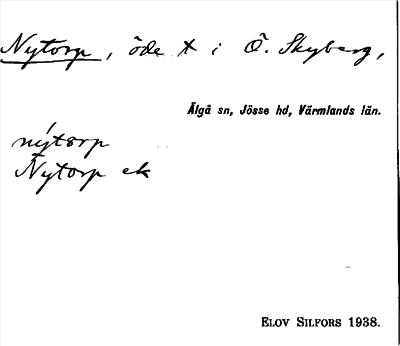 Nytorp, öde t i Ö. Skyberg,
Älgå sn, Jösse hd, Värmlands län.
nýtorp
Nytorp ek
ELOV SILFORS 1938.